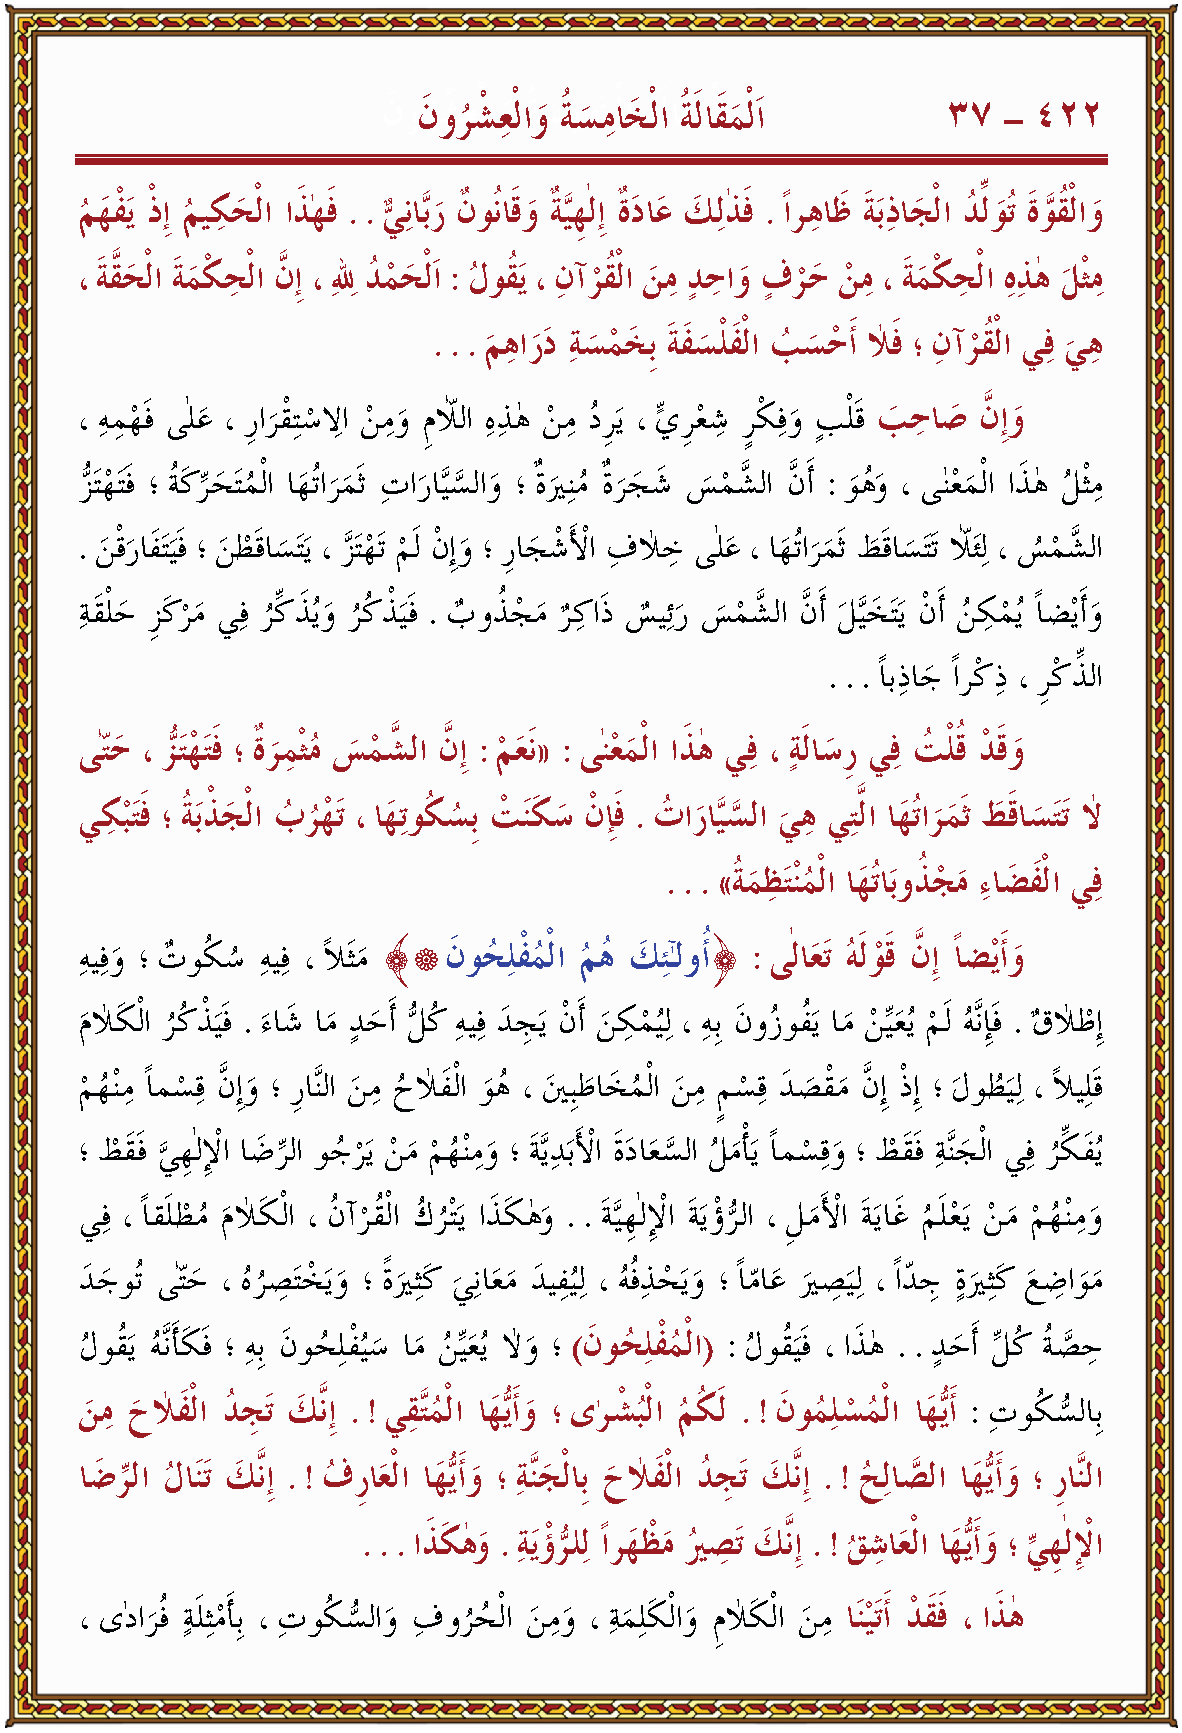 ٤٢٢ – ٣٧ اَلْمَقَالَةُ الْخَامِسَةُ وَالْعِشْرُونَ
وَالْقُوَّةَ تُوَلِّدُ الْجَاذِبَةَ ظَاهِراً . فَذٰلِكَ عَادَةٌ إِلٰهِيَّةٌ وَقَانُونٌ رَبَّانِيٌّ . . فَهٰذَا الْحَكِيمُ إِذْ يَفْهَمُ
مِثْلَ هٰذِهِ الْحِكْمَةَ ، مِنْ حَرْفٍ وَاحِدٍ مِنَ الْقُرْآنِ ، يَقُولُ : اَلْحَمْدُ لِلّٰهِ ، إِنَّ الْحِكْمَةَ الْحَقَّةَ ،
هِيَ فِي الْقُرْآنِ ؛ فَلَا أَحْسَبُ الْفَلْسَفَةَ بِخَمْسَةِ دَرَاهِمَ . . .
وَإِنَّ صَاحِبَ قَلْبٍ وَفِكْرٍ شِعْرِيٍّ ، يَرِدُ مِنْ هٰذِهِ اللَّامِ وَمِنْ الْاِسْتِقْرَارِ ، عَلٰى فَهْمِهِ ،
مِثْلُ هٰذَا الْمَعْنٰى ، وَهُوَ : أَنَّ الشَّمْسَ شَجَرَةٌ مُنِيَرةٌ ؛ وَالسَّيَّارَاتِ ثَمَرَاتُهَا الْمُتَحَرِّكَةُ ؛ فَتَهْتَزُّ
الشَّمْسُ ، لِئَلَّا تَتَسَاقَطَ ثَمَرَاتُهَا ، عَلٰى خِلَافِ الْأَشْجَارِ ؛ وَإِنْ لَمْ تَهْتَزَّ ، يَتَسَاقَطْنَ ؛ فَيَتَفَارَقْنَ .
وَأَيْضاً يُمْكِنُ أَنْ يَتَخَيَّلَ أَنَّ الشَّمْسَ رَئِيسٌ ذَاكِرٌ مَجْذُوبٌ . فَيَذْكُرُ وَيُذَكِّرُ فِي مَرْكَزِ حَلْقَةِ
الذِّكْرِ ، ذِكْراً جَاذِباً . . .
وَقَدْ قُلْتُ فِي رِسَالَةٍ ، فِي هٰذَا الْمَعْنٰى : «نَعَمْ : إِنَّ الشَّمْسَ مُثْمِرَةٌ ؛ فَتَهْتَزُّ ، حَتّٰى
لَا تَتَسَاقَطَ ثَمَرَاتُهَا الَّتِي هِيَ السَّيَّارَاتُ . فَإِنْ سَكَنَتْ بِسُكُوتِهَا ، تَهْرُبُ الْجَذْبَةُ ؛ فَتَبْكِي
فِي الْفَضَاءِ مَجْذُوبَاتُهَا الْمُنْتَظِمَةُ» . . .
وَأَيْضاً إِنَّ قَوْلَهُ تَعَالٰى : ﴿أُولٰئِكَ هُمُ الْمُفْلِحُونَ ۞﴾ مَثَلاً ، فِيهِ سُكُوتٌ ؛ وَفِيهِ
إِطْلَاقٌ . فَإِنَّهُ لَمْ يُعَيِّنْ مَا يَفُوزُونَ بِهِ ، لِيُمْكِنَ أَنْ يَجِدَ فِيهِ كُلُّ أَحَدٍ مَا شَاءَ . فَيَذْكُرُ الْكَلَامَ
قَلِيلاً ، لِيَطُولَ ؛ إِذْ إِنَّ مَقْصَدَ قِسْمٍ مِنَ الْمُخَاطَبِينَ ، هُوَ الْفَلَاحُ مِنَ النَّارِ ؛ وَإِنَّ قِسْماً مِنْهُمْ
يُفَكِّرُ فِي الْجَنَّةِ فَقَطْ ؛ وَقِسْماً يَأْمَلُ السَّعَادَةَ الْأَبَدِيَّةَ ؛ وَمِنْهُمْ مَنْ يَرْجُو الرِّضَا الْإِلٰهِيَّ فَقَطْ ؛
وَمِنْهُمْ مَنْ يَعْلَمُ غَايَةَ الْأَمَلِ ، الرُّؤْيَةَ الْإِلٰهِيَّةَ . . وَهٰكَذَا يَتْرُكُ الْقُرْآنُ ، الْكَلَامَ مُطْلَقاً ، فِي
مَوَاضِعَ كَثِيَرةٍ جِدّاً ، لِيَصِيَر عَامّاً ؛ وَيَحْذِفُهُ ، لِيُفِيدَ مَعَانِيَ كَثِيَرةً ؛ وَيَخْتَصِرُهُ ، حَتّٰى تُوجَدَ
حِصَّةُ كُلِّ أَحَدٍ . . هٰذَا ، فَيَقُولُ : (الْمُفْلِحُونَ) ؛ وَلَا يُعَيِّنُ مَا سَيُفْلِحُونَ بِهِ ؛ فَكَأَنَّهُ يَقُولُ
بِالسُّكُوتِ : أَيُّهَا الْمُسْلِمُونَ ! . لَكُمُ الْبُشْرٰى ؛ وَأَيُّهَا الْمُتَّقِي ! . إِنَّكَ تَجِدُ الْفَلَاحَ مِنَ
النَّارِ ؛ وَأَيُّهَا الصَّالِحُ ! . إِنَّكَ تَجِدُ الْفَلَاحَ بِالْجَنَّةِ ؛ وَأَيُّهَا الْعَارِفُ ! . إِنَّكَ تَنَالُ الرِّضَا
الْإِلٰهِيَّ ؛ وَأَيُّهَا الْعَاشِقُ ! . إِنَّكَ تَصِيُر مَظْهَراً لِلرُّؤْيَةِ . وَهٰكَذَا . . .
هٰذَا ، فَقَدْ أَتَيْنَا مِنَ الْكَلَامِ وَالْكَلِمَةِ ، وَمِنَ الْحُرُوفِ وَالسُّكُوتِ ، بِأَمْثِلَةٍ فُرَادٰى ،